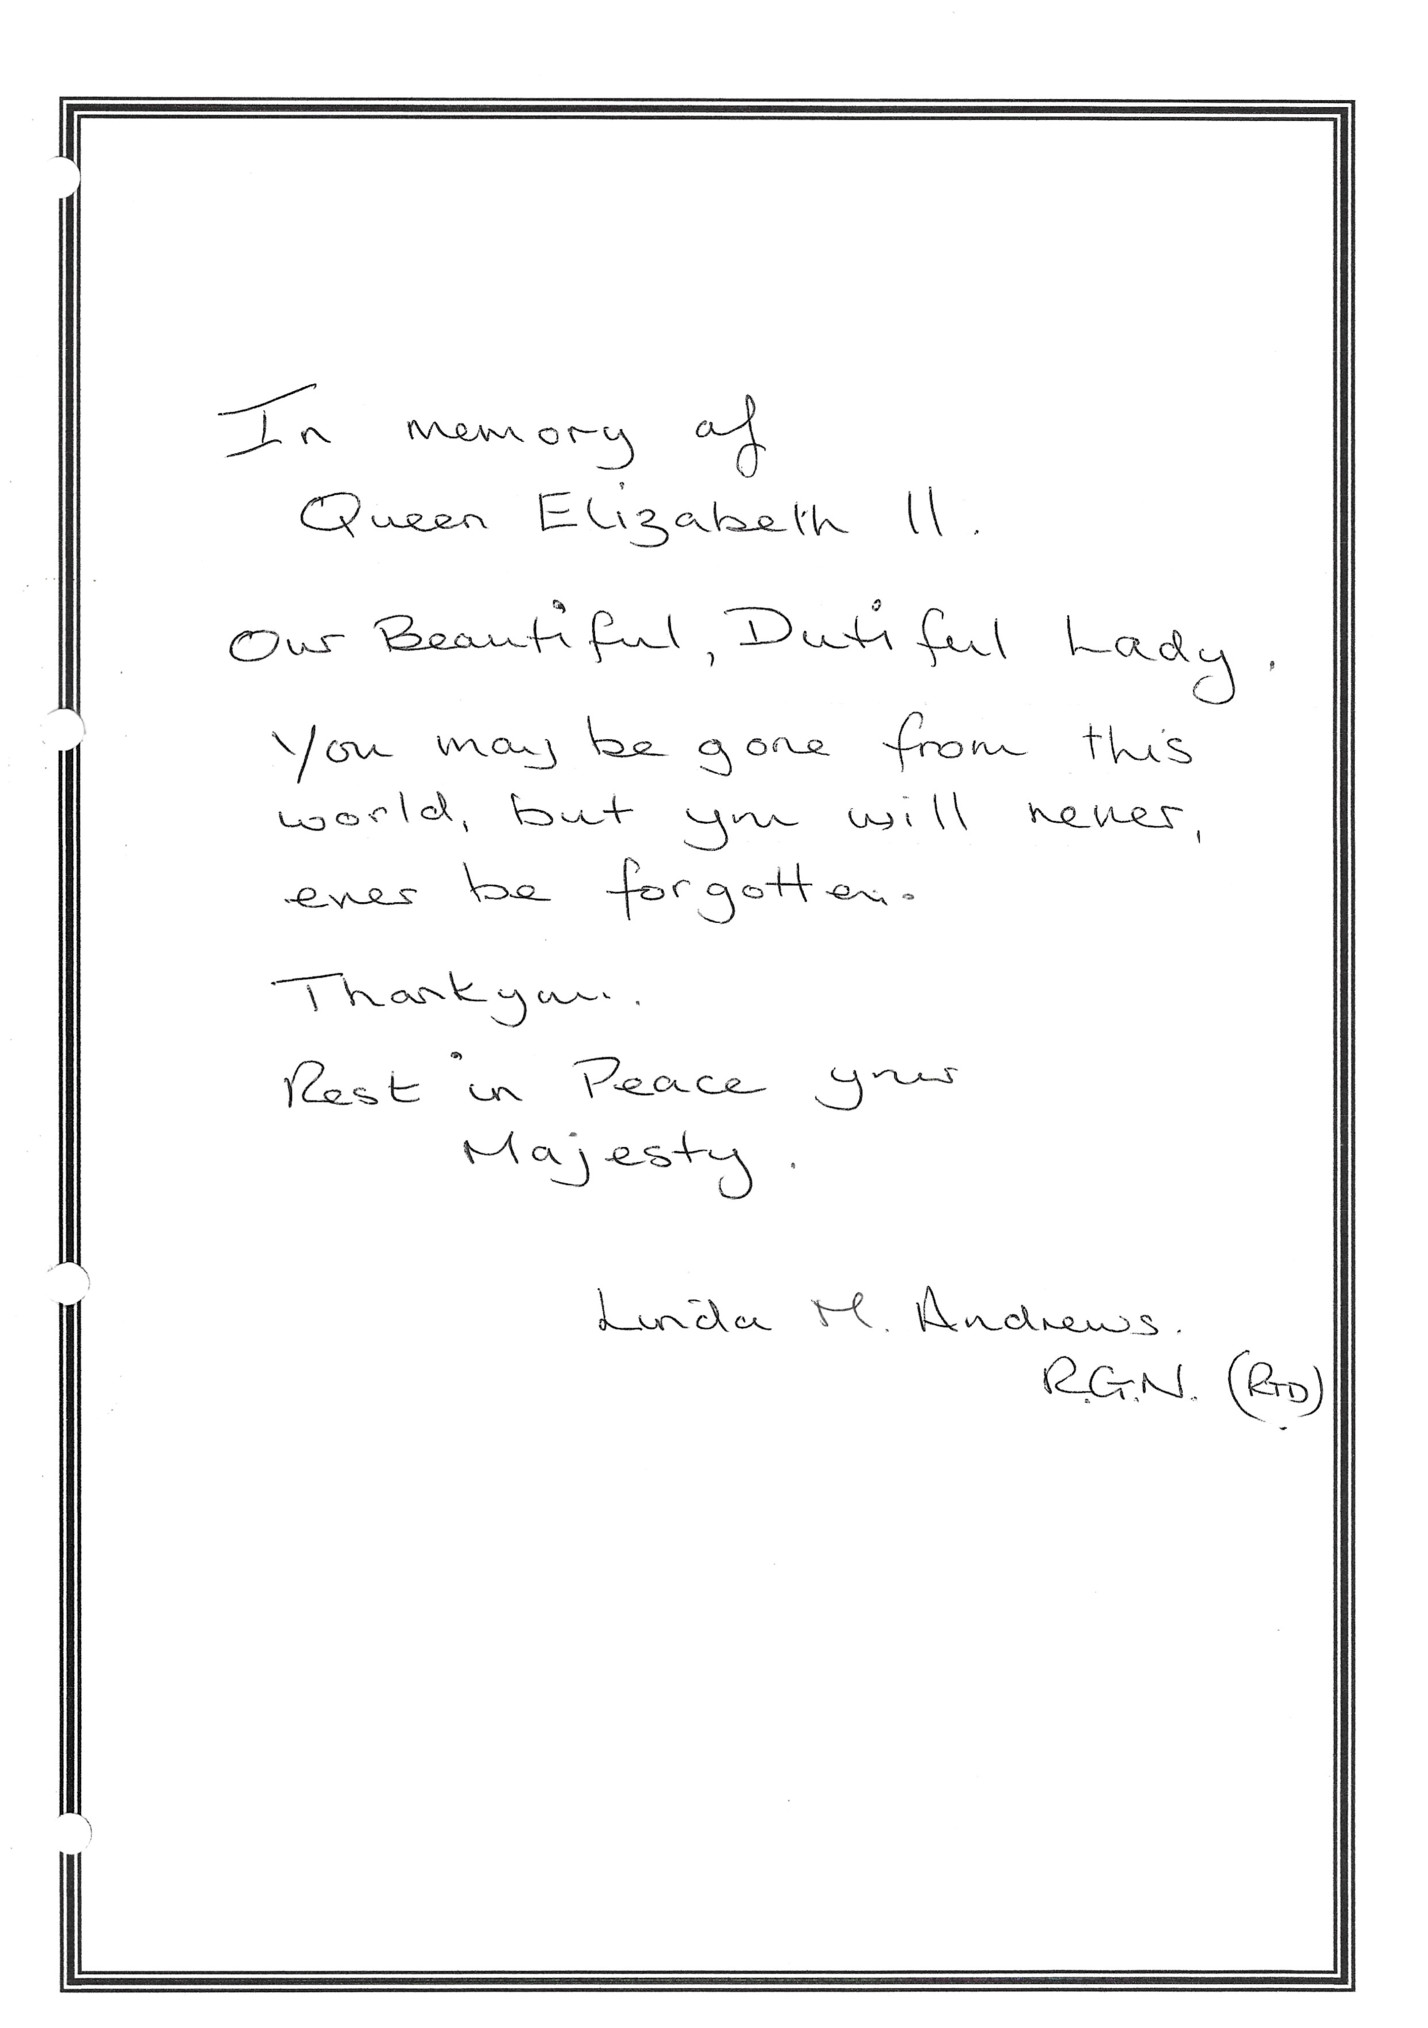 In memory of
Queen Elizabeth II.
Our Beautiful, Dutiful Lady.
You may be gone from this
world, but you will never,
ever be forgotten.
Thankyou.
Rest in Peace your
Majesty.
Linda M. Andrews.
R.G.N. (RTD)